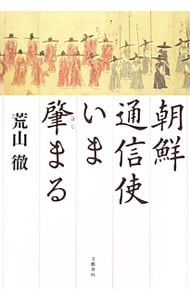 朝鮮
通信使
いま
肇まる
はじ
荒山 徹
文藝春秋